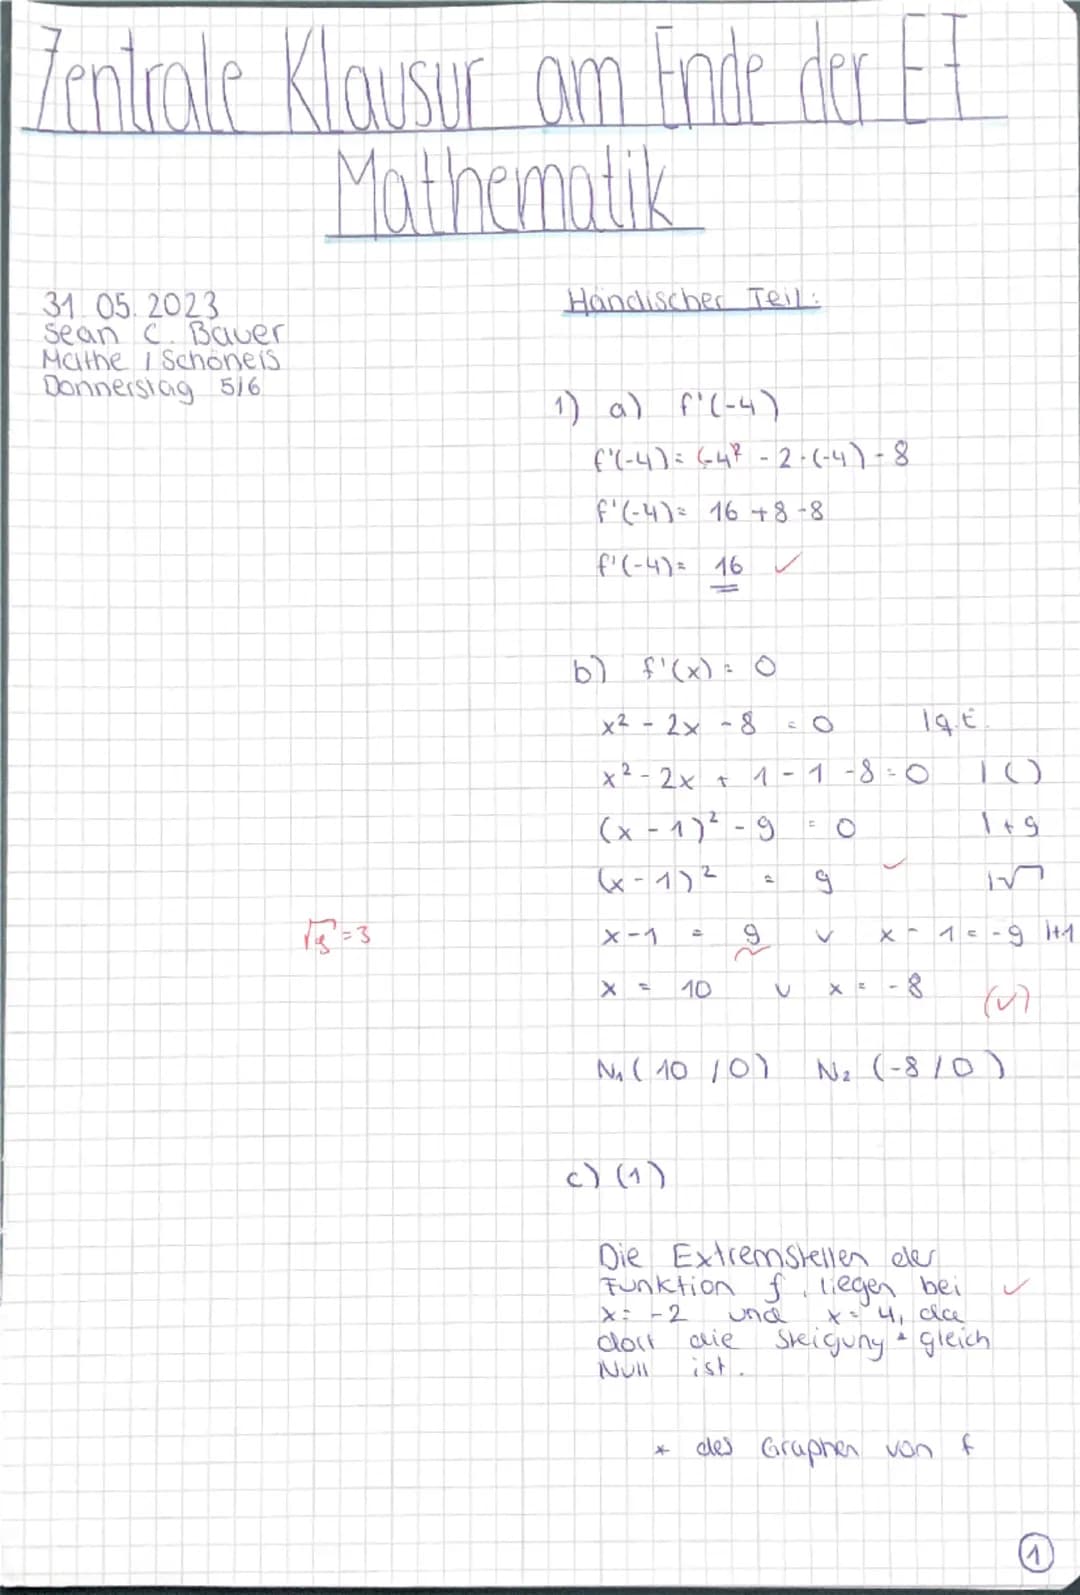 Zentrale Klausur am Ende der EF
Mathematik
31.05.2023
Sean C. Bauer
Mathe / Schöneis
Donnerstag 5/6
Händischer Teil:
1) a) f'(-4)
f'(-4) = (-4)² - 2·(-4) - 8
f'(-4) = 16 + 8 - 8
f'(-4) = 16 ✓
b) f'(x) = 0
x² - 2x - 8 = 0 | q.E.
x² - 2x + 1 - 1 - 8 = 0 | ()
(x - 1)² - 9 = 0 | + 9
(x - 1)² = 9 ✓ | √
√9 = 3 x - 1 = 9 v x - 1 = -9 | +1
x = 10 v x = -8 (✓)
N₁ (10 / 0) N₂ (-8 / 0)
c) (1)
Die Extremstellen der
Funktion f, liegen bei ✓
x = -2 und x = 4, da
dort die Steigung * gleich
Null ist.
* des Graphen von f
1